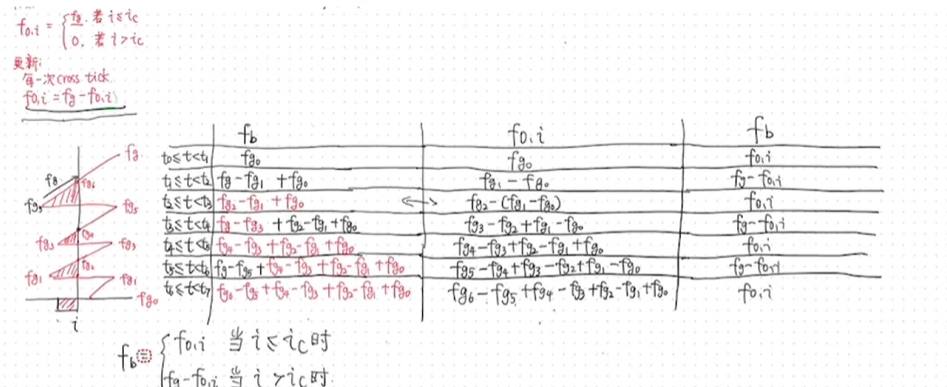 f₀,ᵢ = { fg. 若 i≤ic
0. 若 i>ic
更新:
每一次cross tick
f₀,ᵢ = fg - f₀,ᵢ)
fb f₀,ᵢ fb
t₀≤t<t₁ fg₀ fg₀ f₀,ᵢ
t₁≤t<t₂ fg-fg₁ +fg₀ fg₁-fg₀ fg-f₀,ᵢ
t₂≤t<t₃ fg₂-fg₁ +fg₀ ↔ fg₂-(fg₁-fg₀) f₀,ᵢ
t₃≤t<t₄ fg-fg₃ +fg₂-fg₁+fg₀ fg₃-fg₂+fg₁-fg₀ fg-f₀,ᵢ
t₄≤t<t₅ fg₄-fg₃+fg₂-fg₁+fg₀ fg₄-fg₃+fg₂-fg₁+fg₀ f₀,ᵢ
t₅≤t<t₆ fg-fg₅+fg₄-fg₃+fg₂-fg₁+fg₀ fg₅-fg₄+fg₃-fg₂+fg₁-fg₀ fg-f₀,ᵢ
t₆≤t<t₇ fg₆-fg₅+fg₄-fg₃+fg₂-fg₁+fg₀ fg₆-fg₅+fg₄-fg₃+fg₂-fg₁+fg₀ f₀,ᵢ
fg
fg fg₆
fg₅ fg₅
fg₃ fg₃
fg₁ fg₁
fg₀
i
fb = { f₀,ᵢ 当 i≤ic时
fg-f₀,ᵢ 当 i>ic时